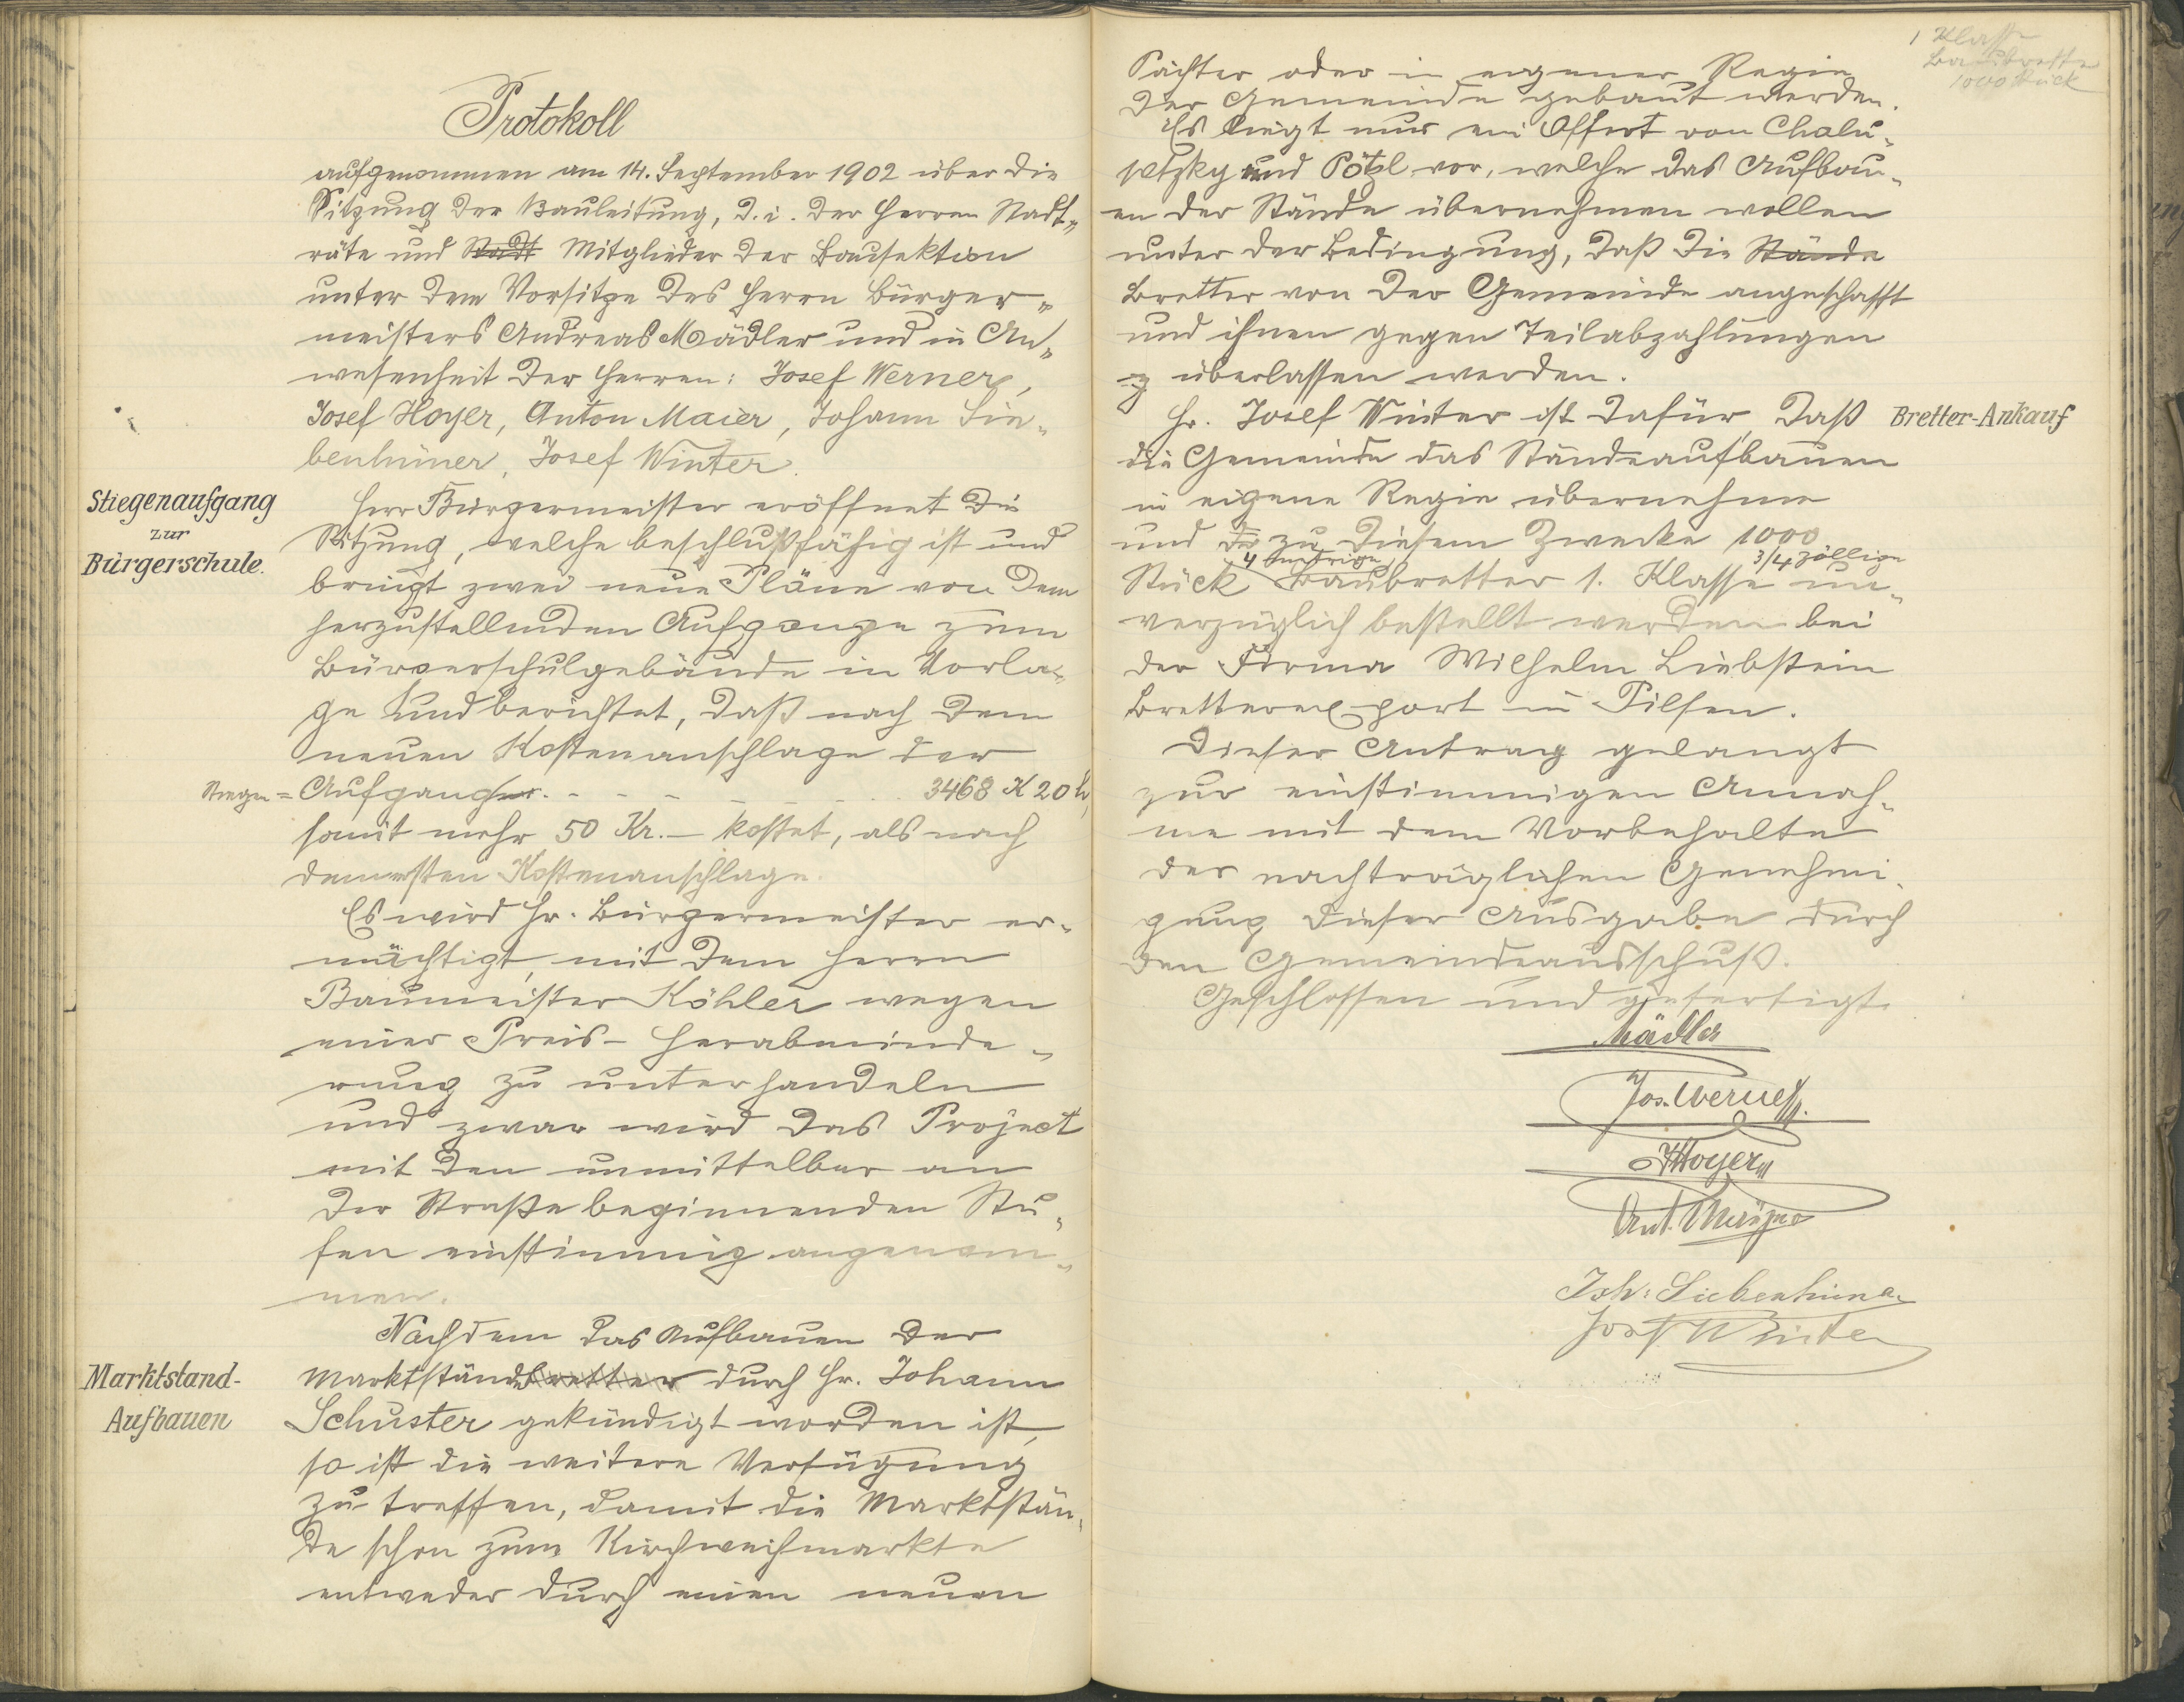 Protokoll
aufgenommen am 14. September 1902 über die
Sitzung der Bauleitung, d. i. der Herren Stadt„
räte und Stadt Mitglieder der Bausektion
unter dem Vorsitze des Herrn Bürger„
meisters Andreas Mädler und in An„
wesenheit der Herren: Josef Werner,
Josef Hoyer, Anton Maier, Johann Sie„
benhüner, Josef Winter.
Stiegenaufgang
zur
Bürgerschule.
Herr Bürgermeister eröffnet die
Sitzung, welche beschlußfähig ist und
bringt zwei neue Pläne von dem
herzustellenden Aufgange zum
Bürgerschulgebäude in Vorla„
ge und berichtet, daß nach dem
neuen Kostenanschlage der
Stiegen= Aufgang 3468 K 20 h,
somit mehr 50 Kr. – kostet, als nach
dem ersten Kostenanschlage.
Es wird Hr. Bürgermeister er„
mächtigt, mit dem Herrn
Baumeister Köhler wegen
einer Preis- Herabminde„
rung zu unterhandeln
und zwar wird das Project
mit den unmittelbar an
der Straße beginnenden Stu„
fen einstimmig angenom„
men.
Marktstand-
Aufbauen
Nachdem das Aufbauen der
Marktständebretter durch Hr. Johann
Schuster gekündigt worden ist,
so ist die weitere Verfügung
zu treffen, damit die Marktstän„
de schon zum Kirchweihmarkte
entweder durch einen neuen
1 Klasse
Baubretter
1000 Stück
Pächter oder in eigener Regie
der Gemeinde gebaut werden.
Es liegt nur ein Offert von Chalu„
petzky und Pötzl vor, welche das Aufbau„
en der Stände übernehmen wollen
unter der Bedingung, daß die Stände
Bretter von der Gemeinde angeschafft
und ihnen gegen Teilabzahlungen
überlassen werden.
Bretter-Ankauf
Hr. Josef Winter ist dafür, daß
die Gemeinde das Ständeaufbauen
in eigene Regie übernehme
und zu diesem Zwecke 1000
3/4 zöllige
Stück Baubretter 1. Klasse un„
verzüglich bestellt werden bei
der Firma Wilhelm Liebstein
Bretterexport in Pilsen.
Dieser Antrag gelangt
zur einstimmigen Annah„
me mit dem Vorbehalte
der nachträglichen Genehmi„
gung dieser Ausgabe durch
den Gemeindeausschuß.
Geschlossen und gefertigt.
Mädler
Jos. Werner
JHoyer
Ant. Maijer
Joh: Siebenhüner
Josef Winter